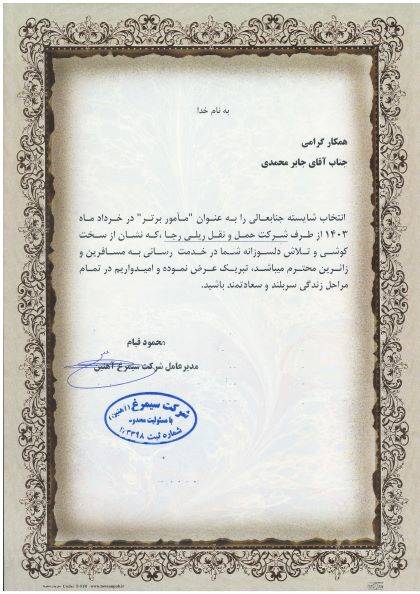 به نام خدا
همکار گرامی
جناب آقای جابر محمدی
انتخاب شایسته جنابعالی را به عنوان "مأمور برتر" در خرداد ماه
۱۴۰۳ از طرف شرکت حمل و نقل ریلی رجا ،که نشان از سخت
کوشی و تلاش دلسوزانه شما در خدمت رسانی به مسافرین و
زائرین محترم میباشد، تبریک عرض نموده و امیدواریم در تمام
مراحل زندگی سربلند و سعادتمند باشید.
محمود قیام
مدیرعامل شرکت سیمرغ آهنین
شرکت سیمرغ (آهنین)
با مسئولیت محدود
شماره ثبت ۱۰۳۳۹۸